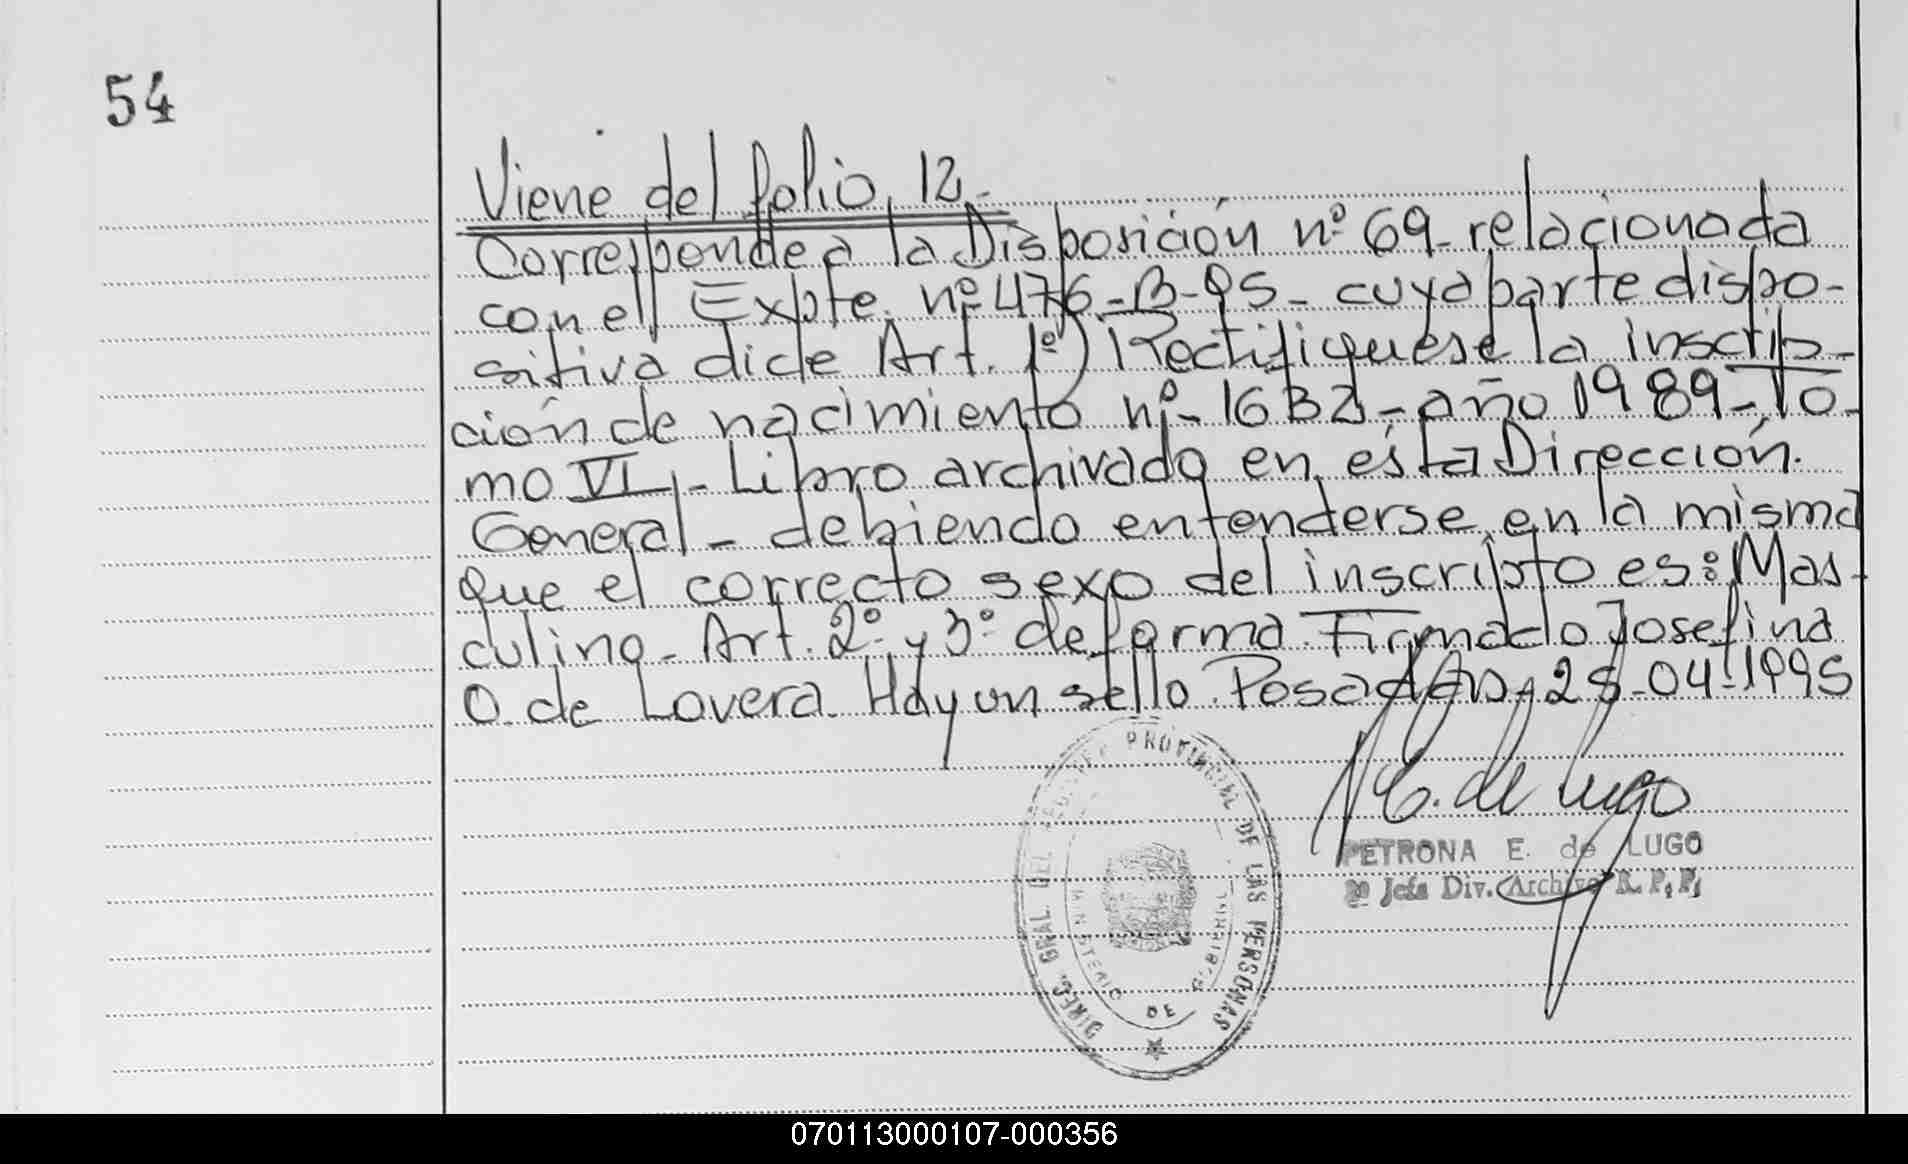 54
Viene del folio, 12.-
Corresponde a la Disposición nº 69- relacionada
con ell Expte. nº 476-B-95- cuya parte dispo-
sitiva dice Art. 1º) Rectifiquese la inscrip-
ción de nacimiento nº- 1632- año 1989- To-
mo VI,- Libro archivado en, ésta Dirección.
General- debiendo entenderse en la misma
que el correcto sexo del inscripto es: Mas-
culino- Art. 2º y 3º de forma. Firmado Josefina
O. de Lovera. Hay un sello. Posadas, 25-04-1995
E. de Lugo
PETRONA E. de LUGO
2º Jefa Div. Archivo R. P. P.
DIREC. GRAL. DEL REGISTRO PROVINCIAL DE LAS PERSONAS
MINISTERIO DE
070113000107-000356